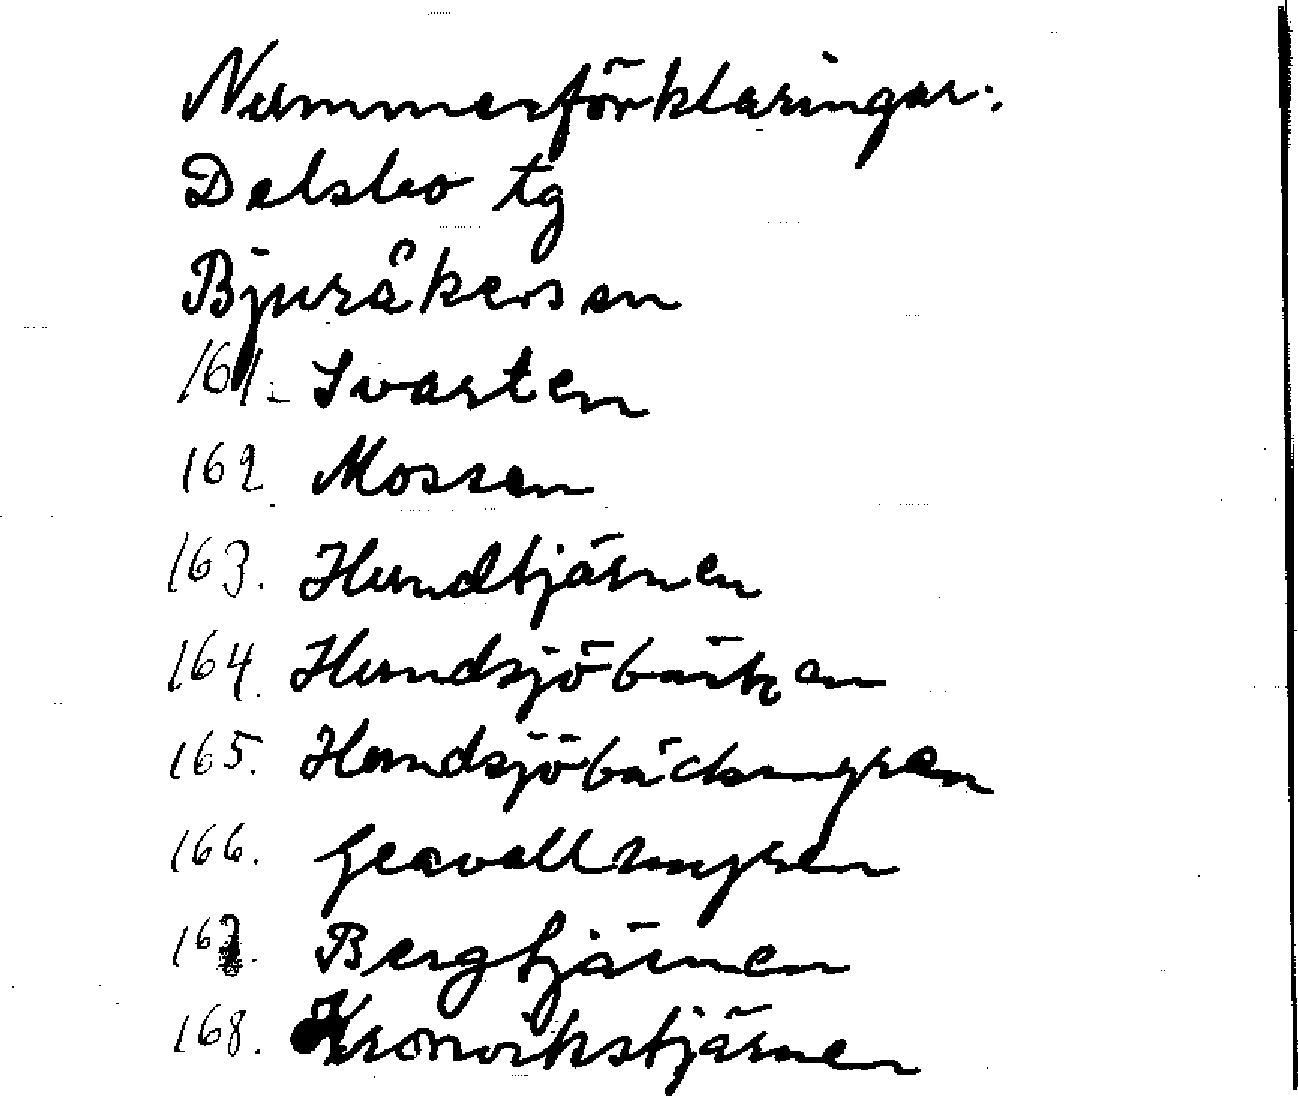 Nummerförklaringar:
Delsbo tg
Bjuråkers sn
161. Svarten
162 Mossen
163. Hundtjärnen
164. Hundsjöbäcken
165. Hundsjöbäcksmyren
166. Gravallsmyren
167. Bergtjärnen
168. Kronvikstjärnen